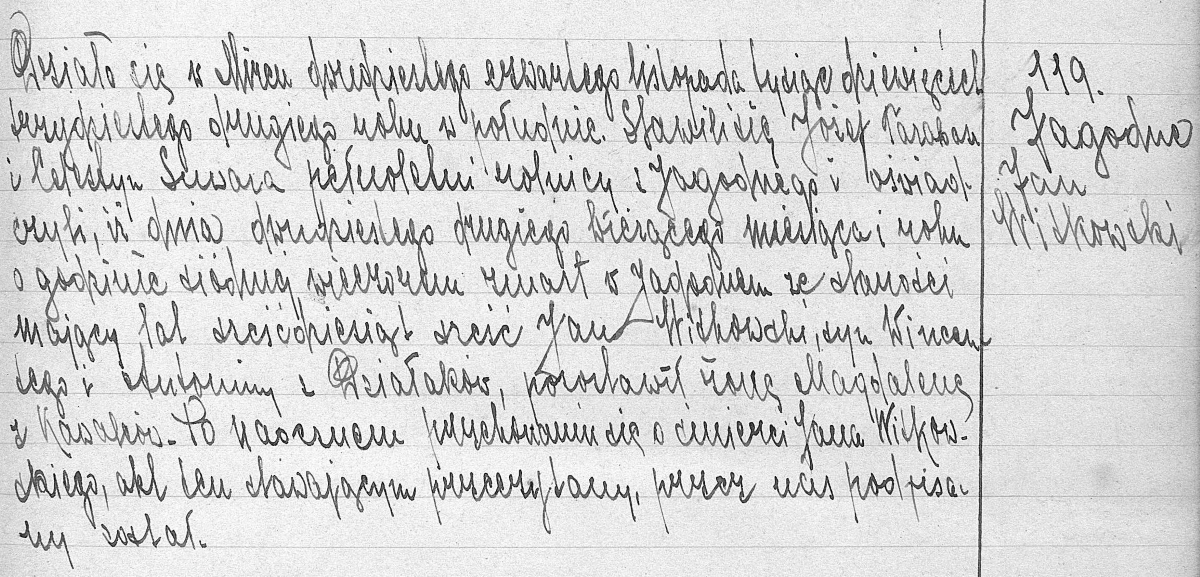 Działo się w Mircu dwudziestego czwartego listopada tysiąc dziewięćset
trzydziestego drugiego roku w południe. Stawili się Józef
i Celestyn Suwara pełnoletni rolnicy z Jagodnego i oświad-
czyli, iż dnia dwudziestego drugiego bieżącego miesiąca i roku
o godzinie siódmej wieczorem zmarł w Jagodnem ze starości
mający lat sześćdziesiąt sześć Jan Witkowski, syn Wincen-
tego i Antoniny z Działaków, pozostawił żonę Magdalenę
z . Po naocznem przekonaniu się o śmierci Jana Witkow-
skiego, akt ten stawającym przeczytany, przez nas podpisa-
ny został.
119.
Jagodne
Jan
Witkowski